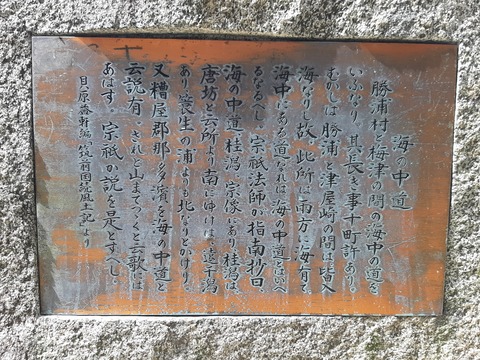 海の中道
勝浦村と梅津の間の海中の道を
いふなり。其長き事十町許あり。
むかしは、勝浦と津屋崎の間は皆入
海なりし故、此所は両方に海有て
海中にある道なれは海の中道とはいへ
るなるへし。宗祇法師か指南抄曰、
海の中道、桂潟、宗像にあり、桂潟は、
唐坊と云所より南にゆけは、遠干潟
あり養生の浦よりも北なりとかけり。
又糟屋郡那多濱を海の中道と
云説有。されと山まてつゝくと云歌には
あはす。宗祇か説を是とすへし。
貝原益軒編「筑前国続風土記」より